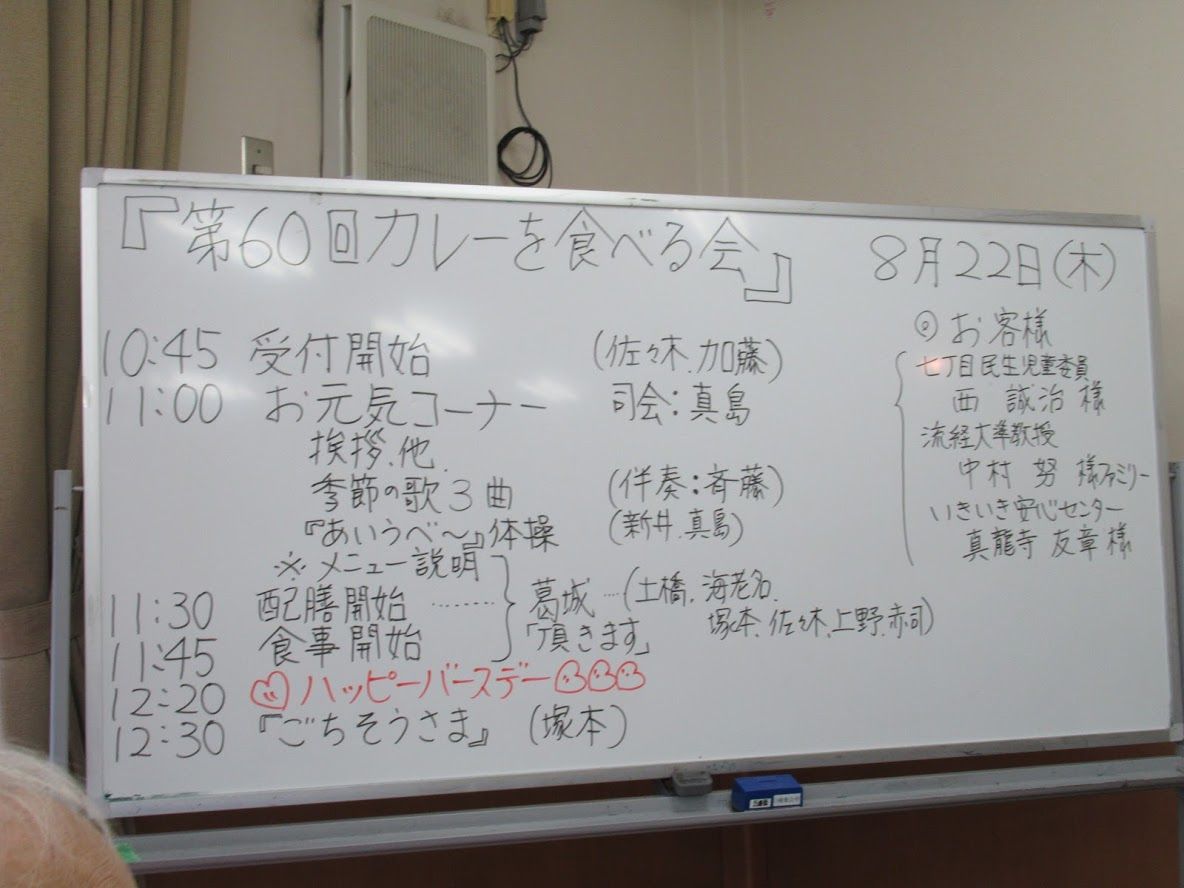 『第60回カレーを食べる会』 8月22日(木)
10:45 受付開始 (佐々木.加藤)
11:00 お元気コーナー 司会:真島
挨拶.他.
季節の歌3曲 (伴奏:斉藤)
『あいうべ〜』体操 (新井.真島)
※メニュー説明
11:30 配膳開始 ........ 葛城 … (土橋.海老名.
塚本.佐々木.上野.赤司)
11:45 食事開始 「頂きます」
12:20 ハッピーバースデー
12:30 『ごちそうさま』 (塚本)
◎お客様
七丁目民生児童委員
西 誠治 様
流経大準教授
中村 努 様ファミリー
いきいき安心センター
真龍寺 友章 様